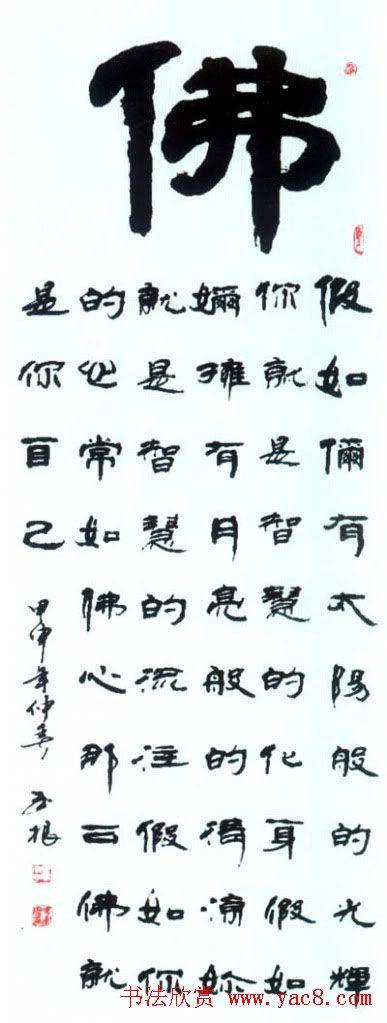 佛
假如儞有太陽般的光輝
你就是智慧的化身假如
嬭擁有月亮般的妳
就是智慧的流注假如你
的心常如佛心那佛就
是你自己
甲申年仲春
根
书法欣赏 www.yac8.com